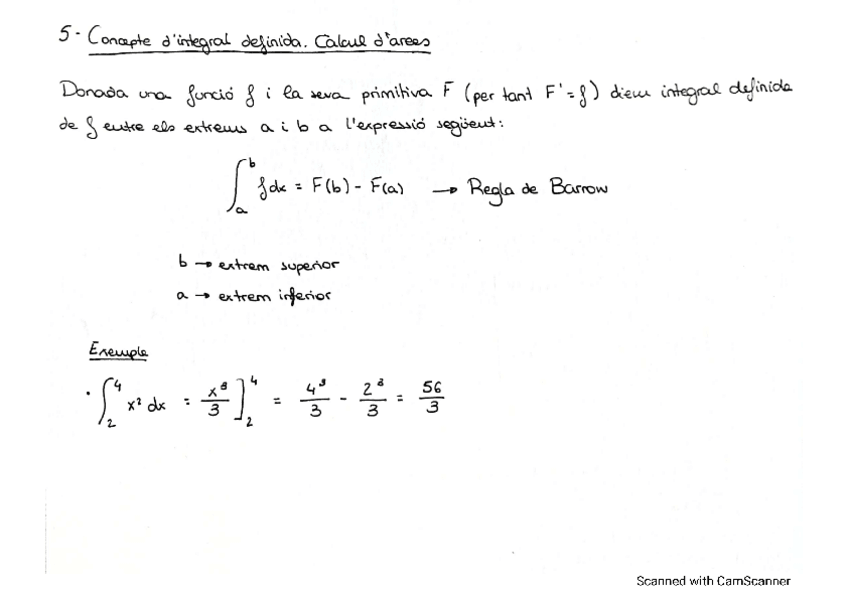 5- Concepte d'integral definida. Càlcul d'àrees
Donada una funció f i la seva primitiva F (per tant F' = f) diem integral definida
de f entre els extrems a i b a l'expressió següent:
∫_a^b f dx = F(b) - F(a) → Regla de Barrow
b → extrem superior
a → extrem inferior
Exemple
· ∫_2^4 x² dx = x³/3 ]_2^4 = 4³/3 - 2³/3 = 56/3
Scanned with CamScanner